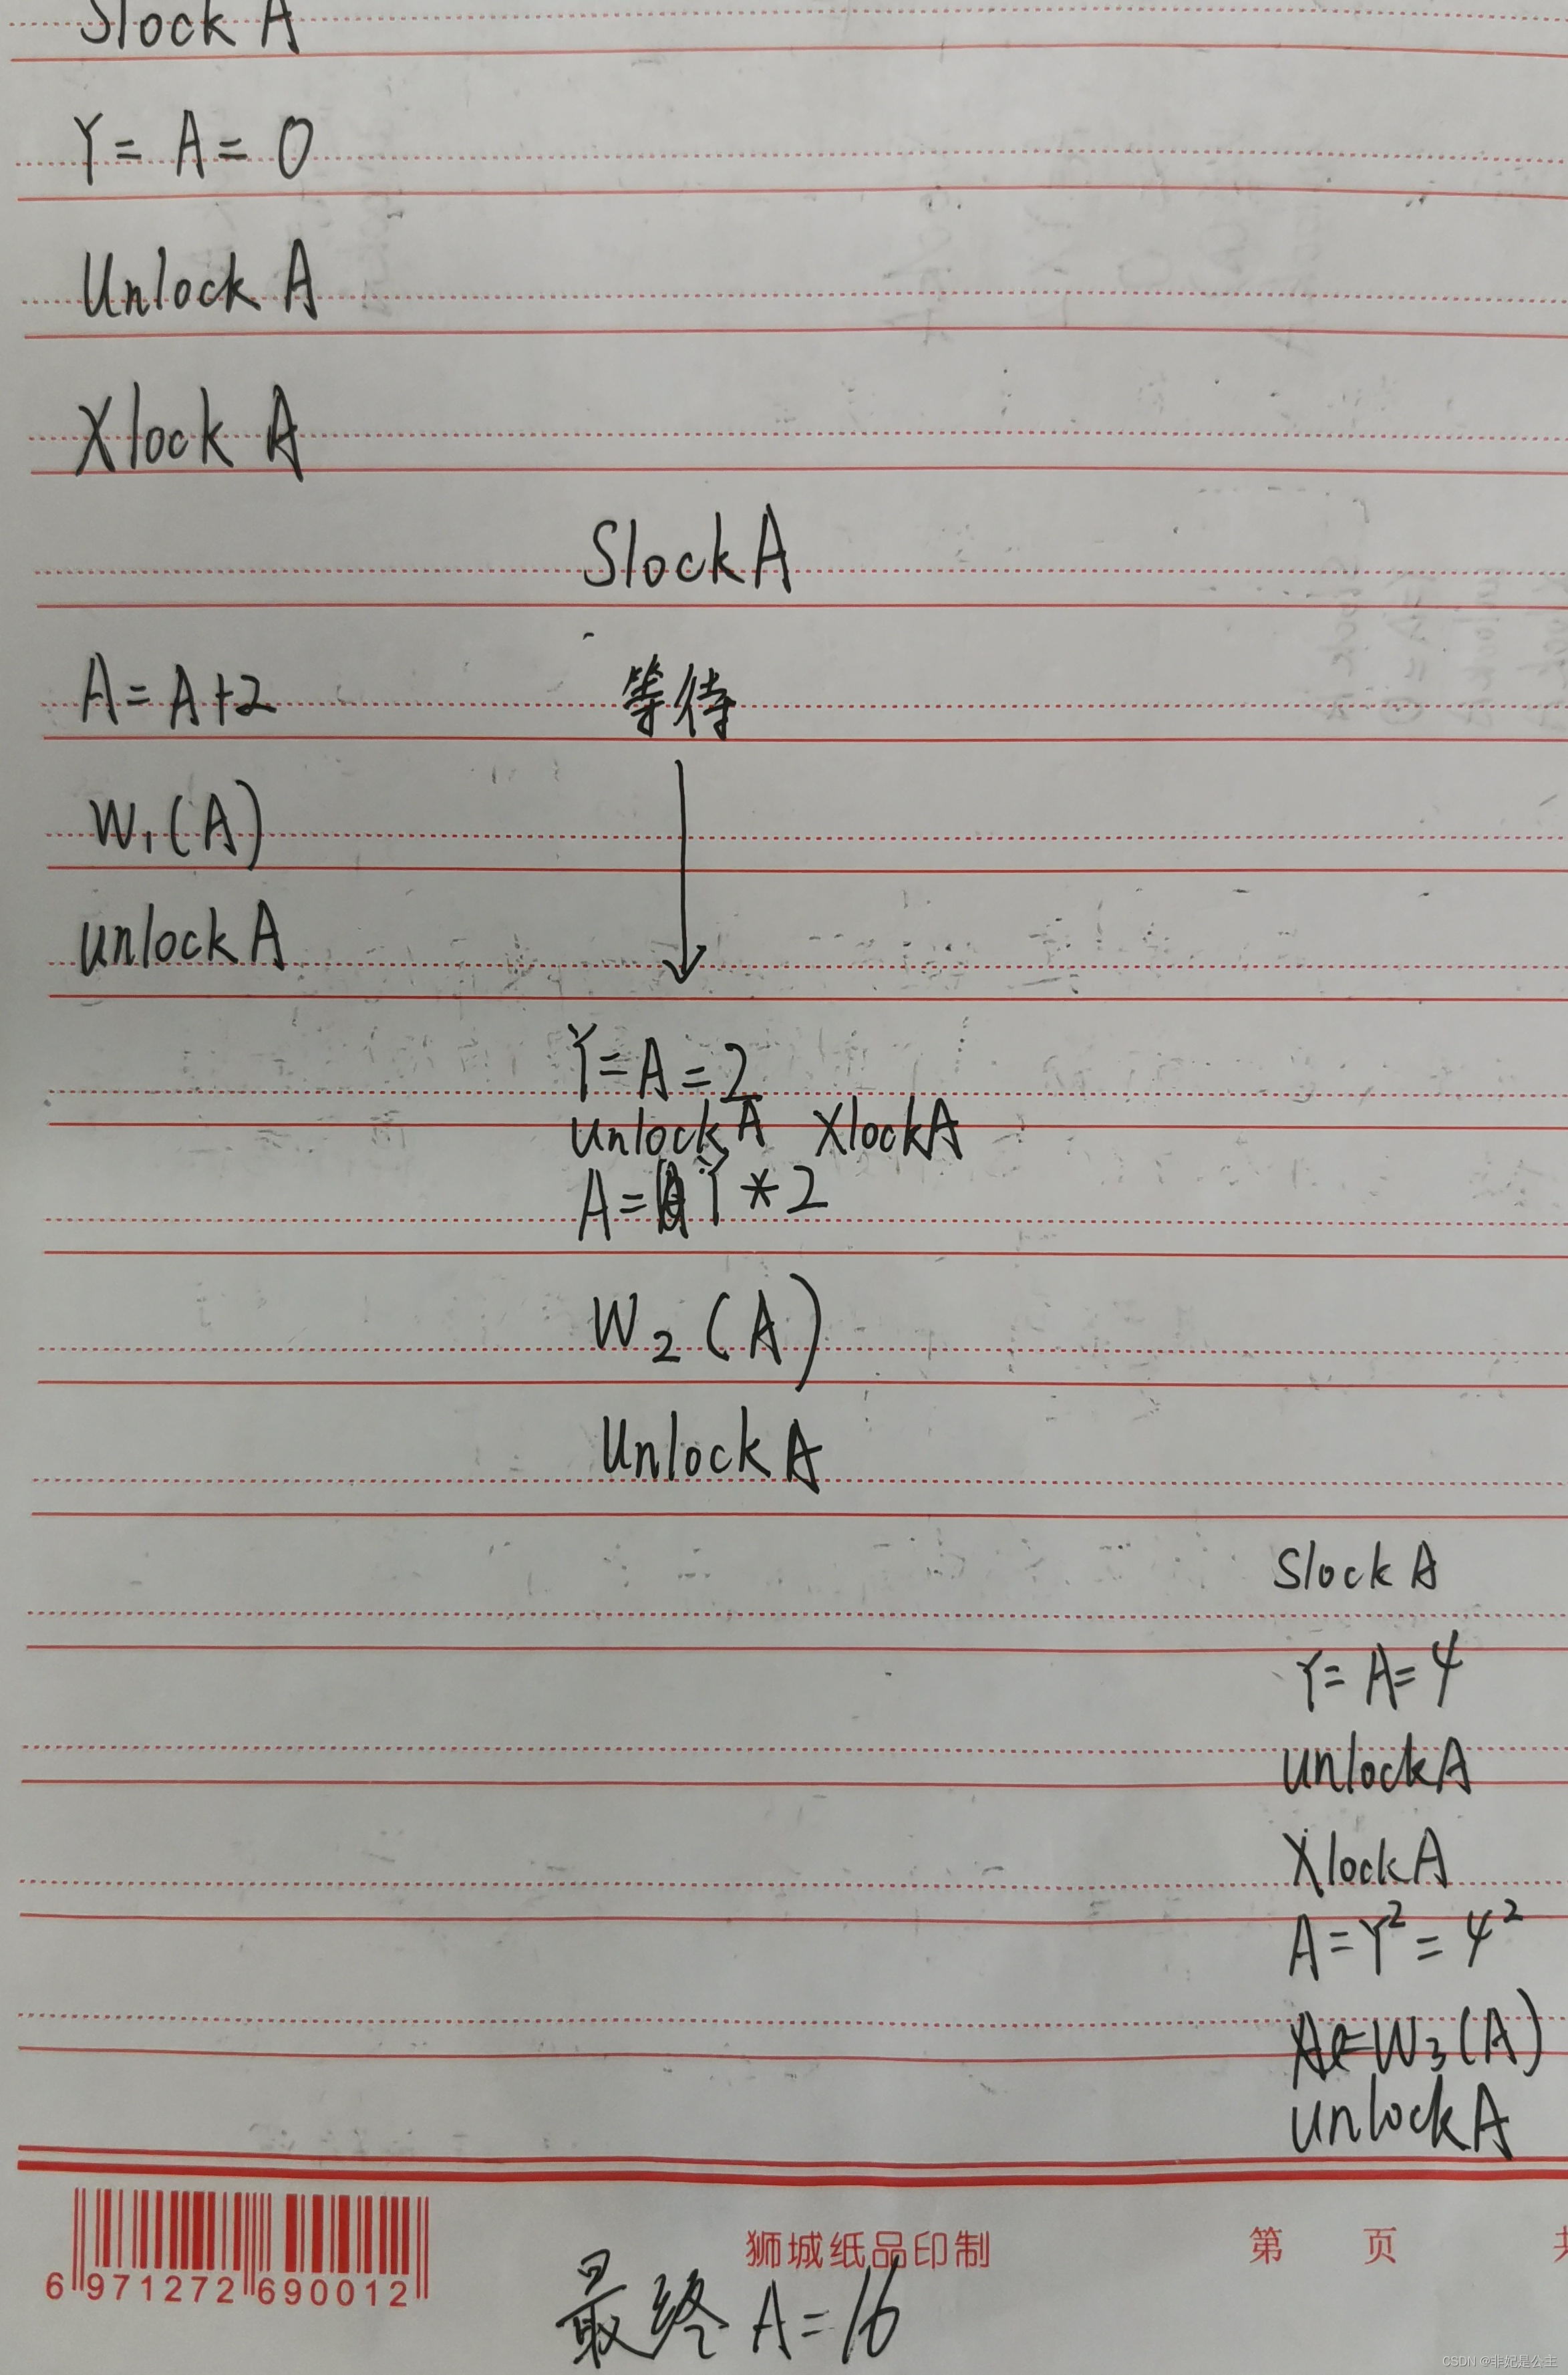 Slock A
Y = A = 0
Unlock A
Xlock A
Slock A
A = A+2 等待
W₁(A)
unlock A
Y = A = 2
Unlock A Xlock A
A = Y * 2
W₂(A)
Unlock A
Slock A
Y = A = 4
unlock A
Xlock A
A = Y² = 4²
W₃(A)
unlock A
狮城纸品印制 第 页
6 971272 690012
最终 A = 16
CSDN @非妃是公主